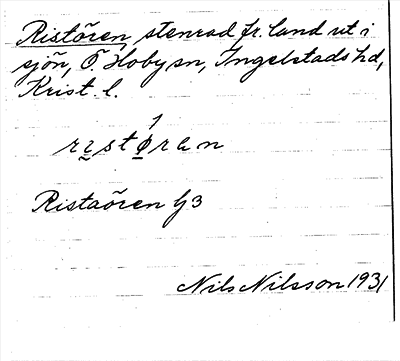 Ristören, stenrad fr. land ut i
sjön, Ö Hoby sn, Ingelstads hd,
Krist. l.
1
rɪstørɐn
Ristaören G3
Nils Nilsson 1931